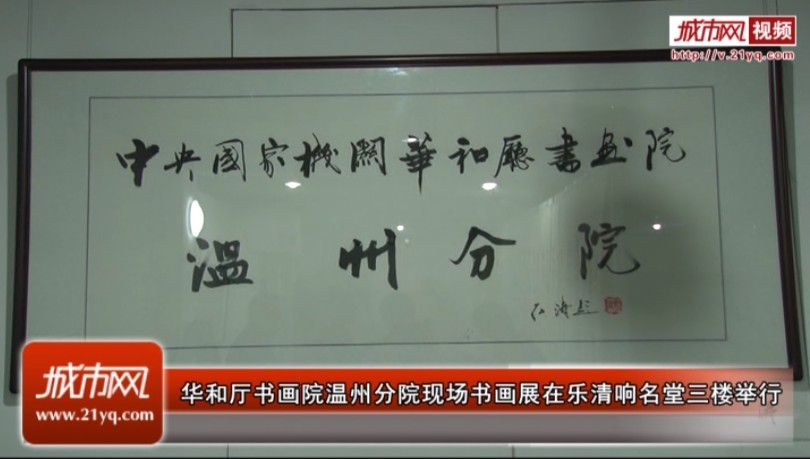 城市网视频
http://v.21yq.com
中央國家機關華和廳書画院
温州分院
城市网
www.21yq.com
华和厅书画院温州分院现场书画展在乐清响名堂三楼举行